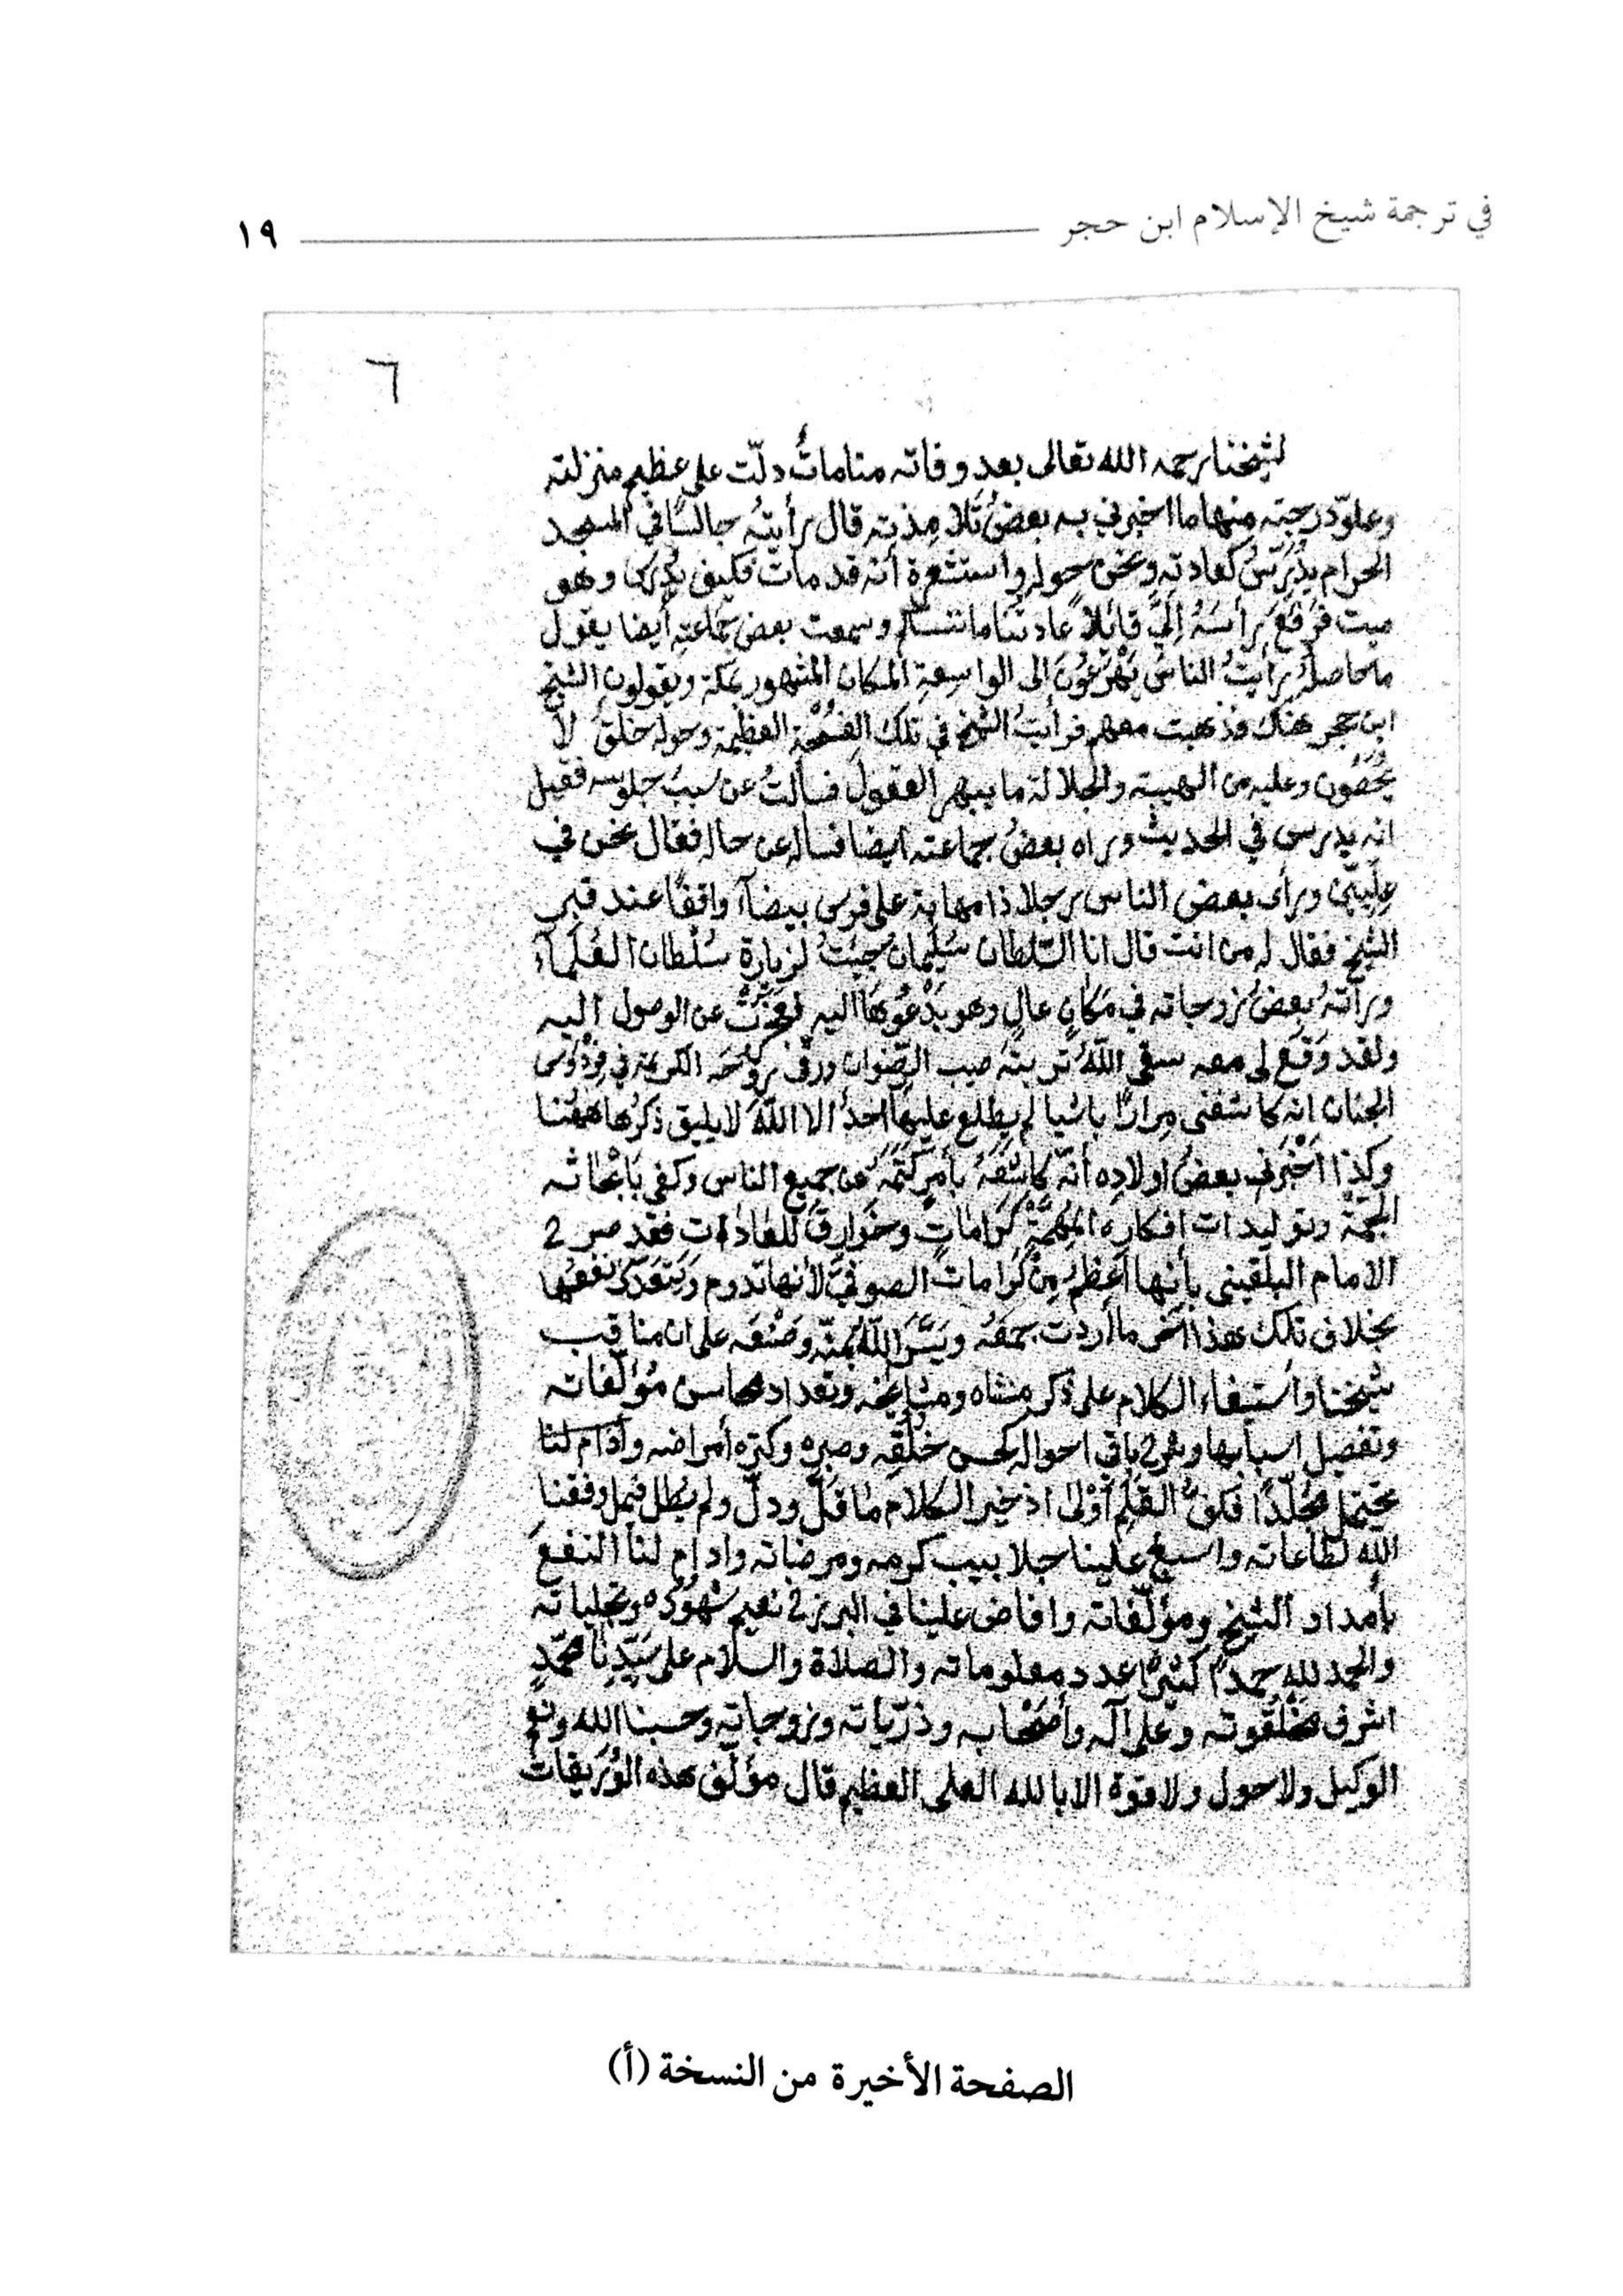 في ترجمة شيخ الإسلام ابن حجر ١٩
٦
لشيخنا رحمه الله تعالى بعد وفاته مناماتٌ دلّت على عظيم منزلته
وعلوّ درجته منها ما اخبرني به بعضُ تلامذته قال رأيتُه جالسًا في المسجد
الحرام يُدَرِّسُ كعادته ونحن حوله واستشعرة أنه قد مات فكيف يُدرّس وهو
ميت فرَفَعَ رأسَهُ إليَّ قائلاً عادتنا ما ننساها وسمعت بعض جماعته أيضا يقول
ما حاصله رأيتُ الناس يَهْرَعُونَ الى الواسعة المكان المشهور بمكة ويقولون الشيخ
ابن حجر هناك فذهبت معهم فرأيتُ الشيخ في تلك الفسحة العظيمة وحوله خلقٌ لا
يُحْصَون وعليه من الهيبة والجلالة ما يبهر العقولَ فسألتُ عن سببُ جلوسه فقيل
انه يدرس في الحديث وراه بعضُ جماعته ايضا فساله عن حاله فقال نحن في
عِلِّيِّين ورأى بعض الناس رجلا ذا مهابة على فرس بيضآء واقفًا عند قبر
الشيخ فقال له من انت قال انا السّلطان سُلَيمان جيتُ لزيارة سُلْطان العُلَمآء
ورأَتهُ بعضُ زوجاته في مَكانٍ عالٍ وهو يَدْعُوهَا اليه فعَجَزَتْ عن الوصول اليه
ولقد وَقَع لى معه سقى اللّهُ تربته صيب الرّضوان ورقى روحَه الكريمة في فِرْدَوسى
الجنان انه كاشفنى مِرارًا باشيا لم يطلع عليها احدٌ الا اللّه لا يليق ذكرُها ههُنا
وكذا اَخْبَرنى بعضُ اولاده أنّه كاشَفَهُ بأمرٍ كَتَمَهُ عن جميع الناس وكفى بَابْحَاثه
الجَمّة وتوليدات افكاره المُهِمَّةِ كَرَاماتٍ وخَوارِقَ للعادات فقد صرح
الامام البلقينى بأنها أعظمُ مِنْ كَرامات الصوفيّة لأنها تدوم ويَتَعَدّى نفعُها
بخلاف تلك هذا آخر ما أردت جمعَهُ ويَسَّرَ اللّهُ بمَنّه وصُنْعَه على ان مناقب
شيخنا واستيفاء الكلام على ذكر منشاه ومشايخه وتعداد محاسن مُؤلّفاته
وتفصيل اسبابها وشرح باقى احواله كحسن خُلُقِه وصبره وكثره أمراضه وأدام لنا
يحتمل مُجَلّدًا فكفُّ القلم أَوْلى اذ خير الكلام ما قلّ ودلّ ولم يطل فيمل وفقنا
الله لطاعاته واسبغ علينا جلابيب كرمه ومرضاته وادام لنا النفعَ
بأمداد الشيخ ومؤلّفاته وافاض علينا في البرزخ نعيم شهُوده وتجلياته
والحمد لله حمدًا كثيرًا عدد معلوماته والصلاة والسلام على سَيّدِنا محمّدٍ
اشرف مخلُقوته وعلى آله وأصْحَابه وذرّياته وزوجاته وحسبنا الله ونعم
الوكيل ولا حول ولا قوة الا بالله العلى العظيم قال مؤلّف هذه الوُرَيقات
الصفحة الأخيرة من النسخة (أ)